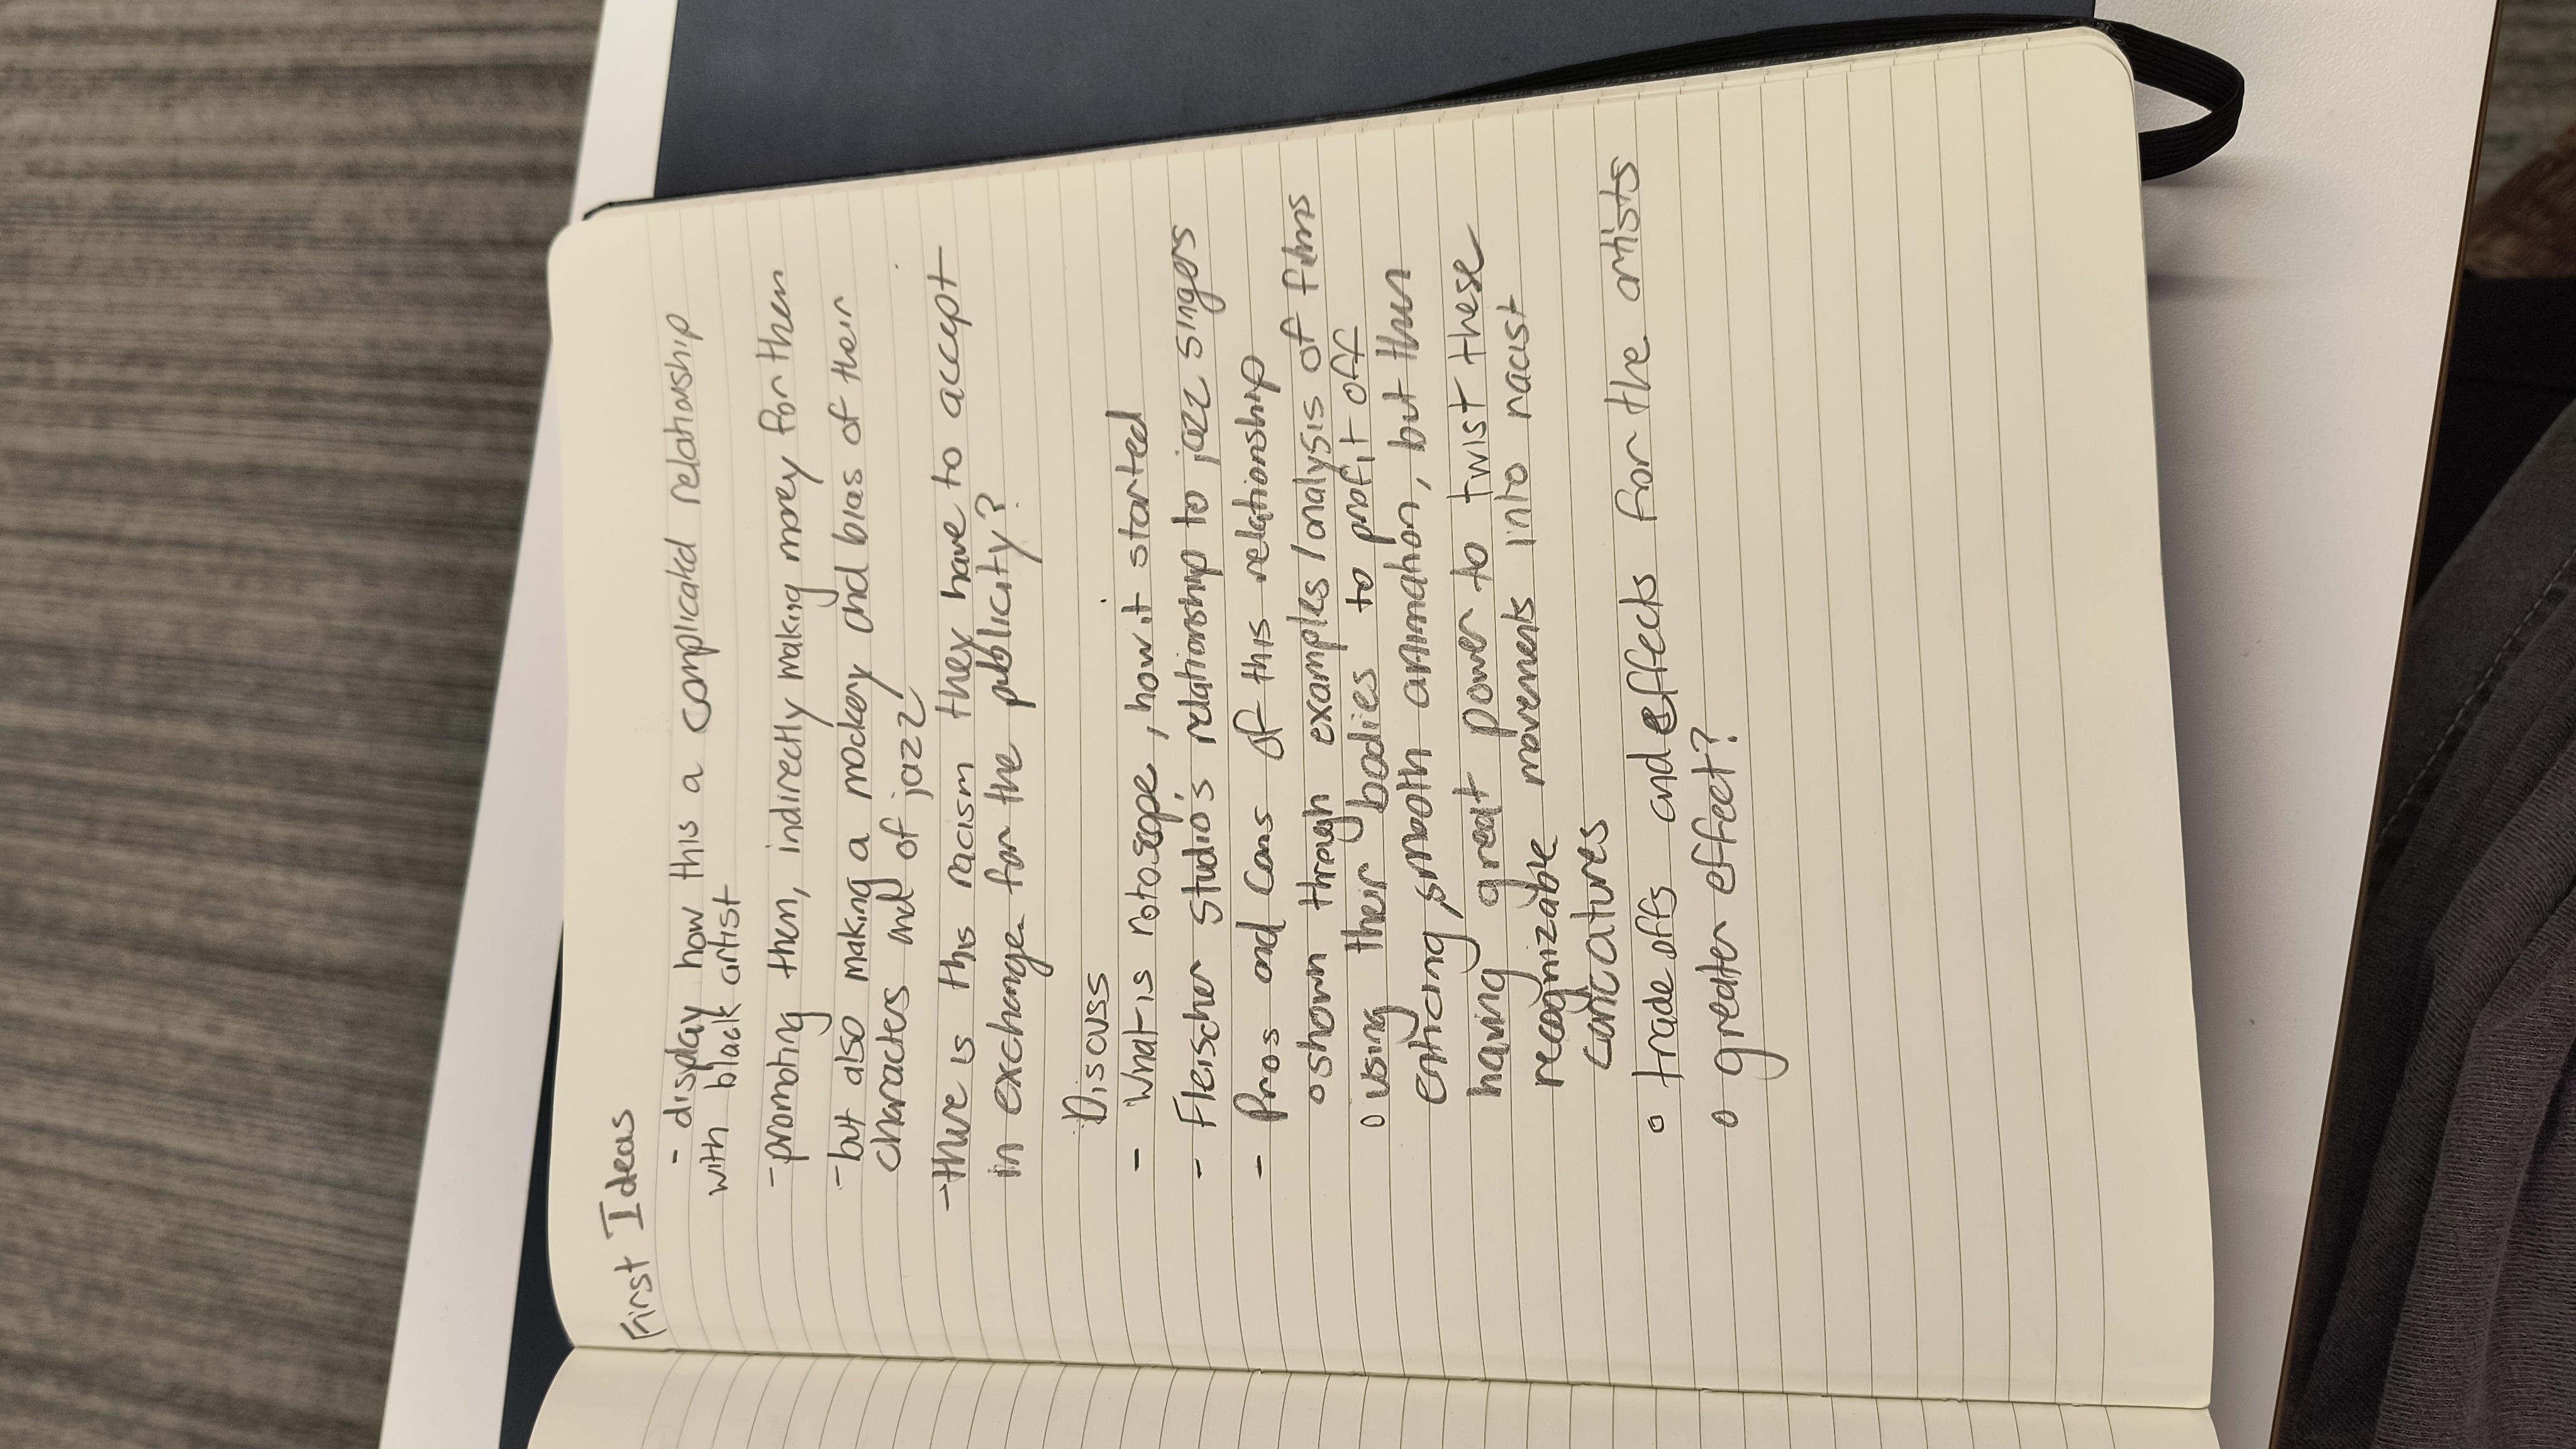 First Ideas
- display how this a complicated relationship
with black artist
- promoting them, indirectly making money for them
- but also making a mockery and bias of their
characters and of jazz
- there is this racism they have to accept
in exchange for the publicity?
Discuss
- What is rotoscope, how it started
- Fleischer Studio's relationship to jazz singers
- Pros and Cons of this relationship
o shown through examples / analysis of films
o using their bodies to profit off
enticing, smooth animation, but then
having great power to twist these
recognizable movements into racist
caricatures
o trade offs and effects for the artists
o greater effect?